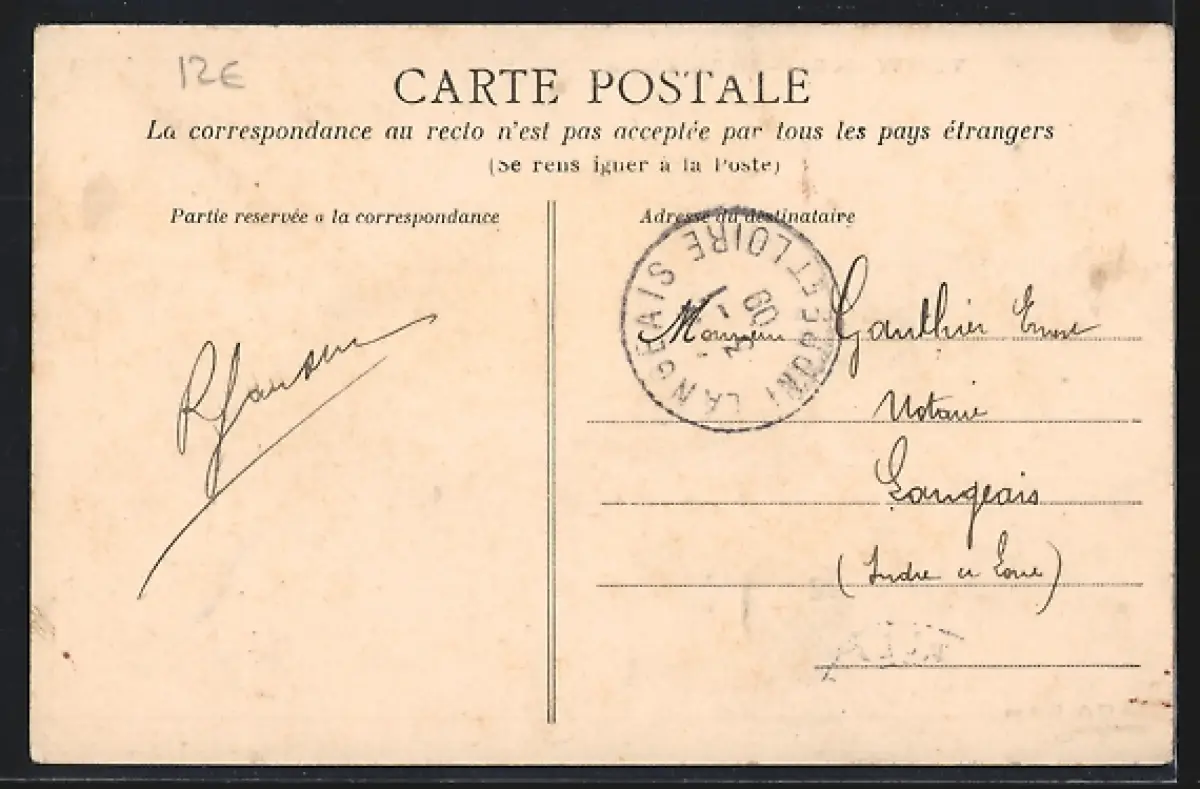 12€
CARTE POSTALE
La correspondance au recto n'est pas acceptée par tous les pays étrangers
(Se renseigner à la Poste)
Partie reservée a la correspondance
Adresse du destinataire
LANGEAIS INDRE ET LOIRE
3 09
Monsieur Gauthier
Notaire
Langeais
(Indre et Loire)